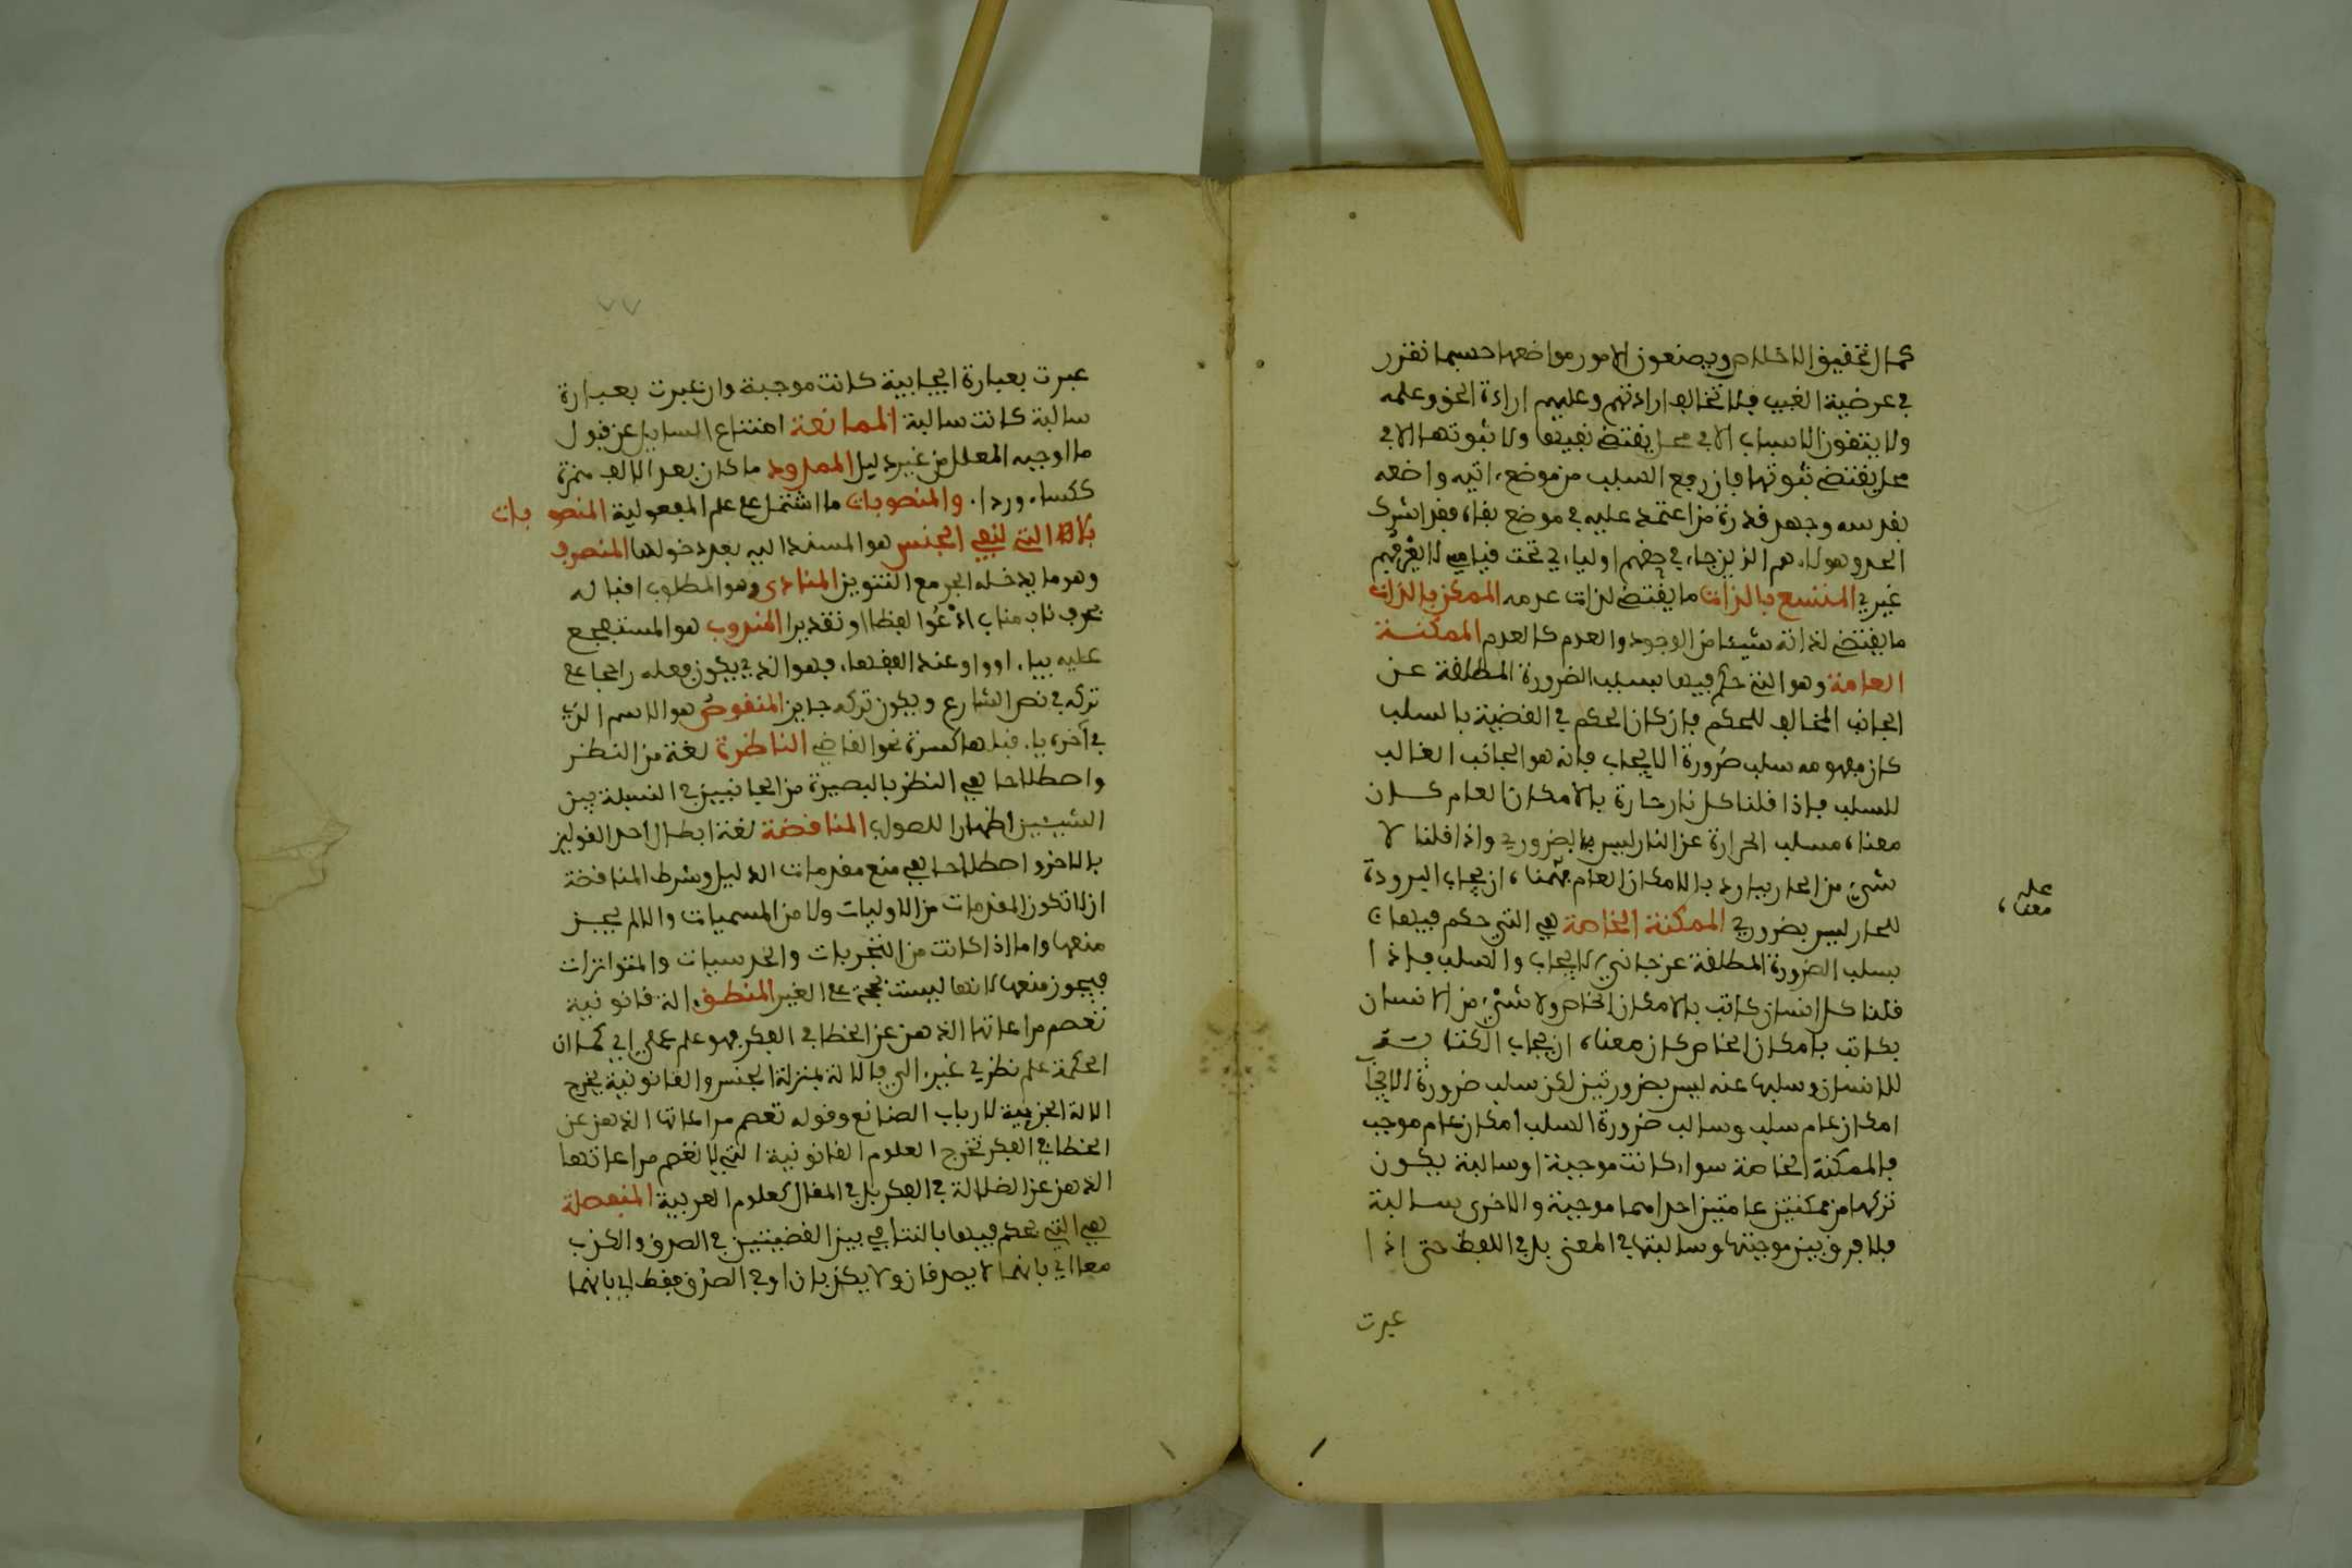 كمال تحقيق الاخلاص ويضعون الامور مواضعها حسبما تقرر
في عرضية الغيب فلا تخالف ارادتهم وعليهم ارادة الحق وعلمه
ولا ينفون الاسباب الا في محل يقتضي نفيها ولا يثبوتها الا في
محل يقتضي ثبوتها فان رفع السبب من موضع اثبته واضعه
فقد سفه وجهل قدره من اعتمد عليه في موضع نفاه فقد اشرك
الحد وهولاء هم الذين جاء في حقهم اوليائي تحت قبابي لا يعرفهم
غيري الممتنع بالذات ما يقتضي لذات عدمه الممكن بالذات
ما يقتضي لذاته شيئا من الوجود والعدم كالعدم الممكنة
العامة وهو التي حكم فيها بسلب الضرورة المطلقة عن
الجانب المخالف للحكم فان كان الحكم في القضية بالسلب
كان مفهومه سلب ضرورة الايجاب فانه هو الجانب الغالب
للسلب فاذا قلنا كل نار حارة بالامكان العام كان
معناه سلب الحرارة عن النار ليس بالضروري واذا قلنا لا
شيء من الحار ببارد بالامكان العام فمعناه ان ايجاب البرودة
للحار ليس بضروري الممكنة الخاصة هي التي حكم فيها
بسلب الضرورة المطلقة عن جانبي الايجاب والسلب فاذا
قلنا كل انسان كاتب بالامكان الخاص ولا شيء من الانسان
بكاتب بامكان الخاص كان معناه ان ايجاب الكتابة
للانسان وسلبها عنه ليس بضروريتين لكن سلب ضرورة الايجا
امكان عام سلب وسالب ضرورة السلب امكان عام موجب
فالممكنة الخاصة سواء كانت موجبة او سالبة يكون
تركبها من ممكنتين عامتين احداهما موجبة والاخرى سالبة
فلا فرق بين موجبتها وسالبتها في المعنى بل في اللفظ حتى اذا
عبرت
معناه
عبرت بعبارة ايجابية كانت موجبة وان عبرت بعبارة
سالبة كانت سالبة الممانعة امتناع السايل عن قبول
ما اوجبه المعلل من غير دليل الممدود ما كان بعد الالف همزة
ككساء ورداء والمنصوبات ما اشتمل على علم المفعولية المنصوبات
بلا التي لنفي الجنس هو المسند اليه بعد دخولها المنصرف
وهو ما يدخله الجر مع التنوين المنادى وهو المطلوب اقباله
بحرف ناب مناب ادعوا لفظا او تقديرا المندوب هو المتفجع
عليه بيا او وا وعند الفقهاء فهو الذي يكون فعله راجحا على
تركه في نص الشارع ويكون تركه جايز المنقوص هو الاسم الذي
في آخره ياء قبلها كسرة نحو القاضي الناظرة لغة من النظر
واصطلاحا هي النظر بالبصيرة من الجانبين في النسبة بين
الشيئين اظهارا للصواب المناقضة لغة ابطال احد القولين
بالاخر واصطلاحا هي منع مقدمات الدليل وشرط المناقضة
ان لا تكون المقدمات من الاوليات ولا من المسميات والا لم يجز
منعها واما اذا كانت من التجربيات والحدسيات والمتواترات
فيجوز منعها لانها ليست بحجة على الغير المنطق الة قانونية
تعصم مراعاتها الذهن عن الخطا في الفكر فهو علم عملي الي كما ان
الحكمة علم نظري غير الي فالالة بمنزلة الجنس والقانونية يخرج
الالة الجزئية لارباب الصنائع وقوله تعصم مراعاتها الذهن عن
الخطا في الفكر تخرج العلوم القانونية التي لا تعصم مراعاتها
الذهن عن الضلالة في الفكر بل في المقال كعلوم العربية المنفصلة
هي التي يحكم فيها بالتنافي بين القضيتين في الصدق والكذب
معا اي بانهما لا يصدقان ولا يكذبان او في الصدق فقط اي بانهما